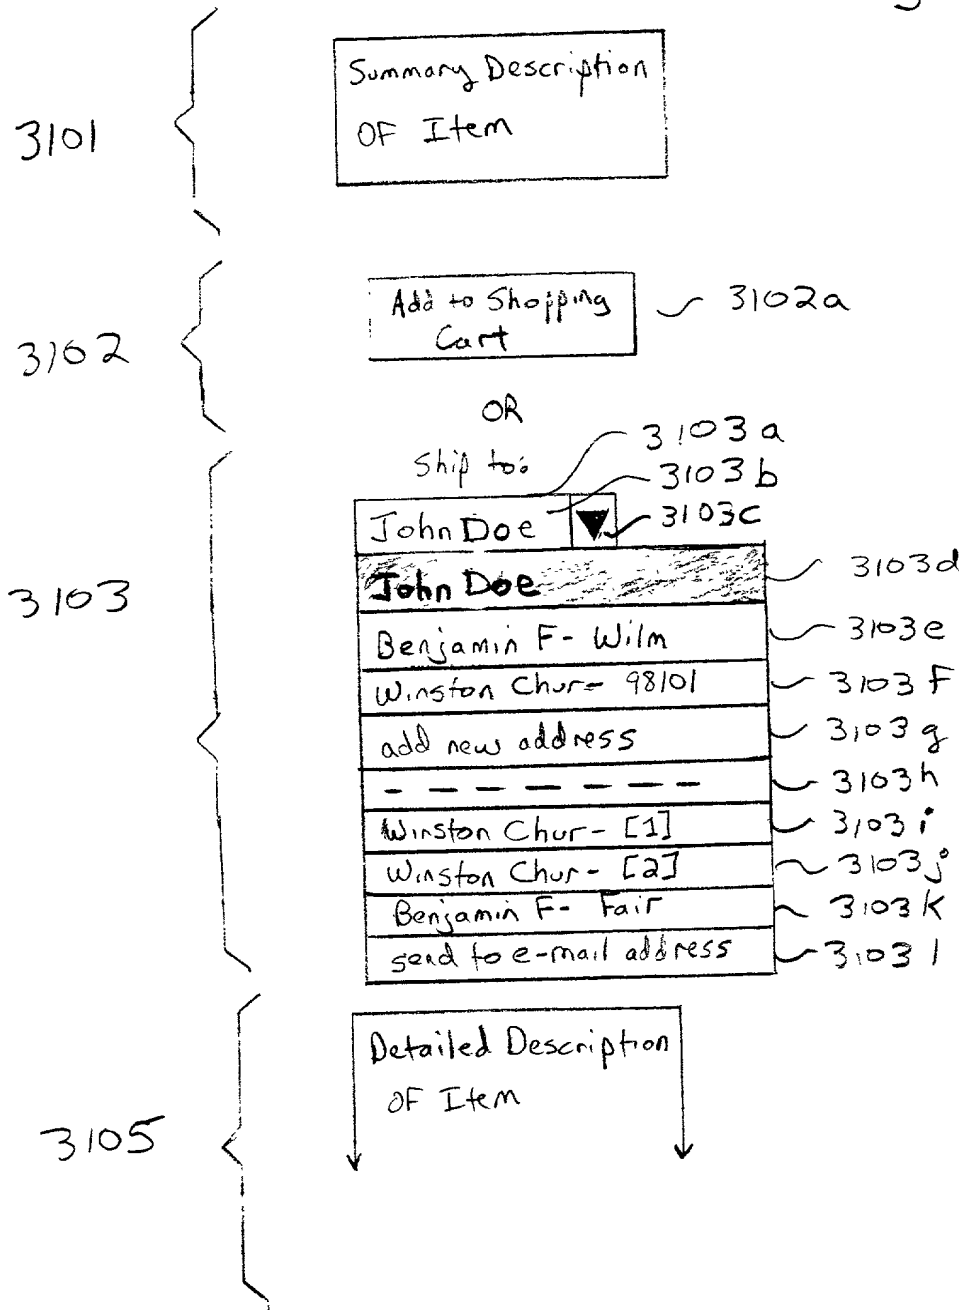 Summary Description
OF Item
3101
Add to Shopping
Cart
3102a
3102
OR
3103a
Ship to:
3103b
John Doe
3103c
John Doe
3103d
3103
Benjamin F- Wilm
3103e
Winston Chur- 98101
3103F
add new address
3103g
- - - - - - - -
3103h
Winston Chur- [1]
3103i
Winston Chur- [2]
3103j
Benjamin F- Fair
3103K
send to e-mail address
3103l
Detailed Description
OF Item
3105